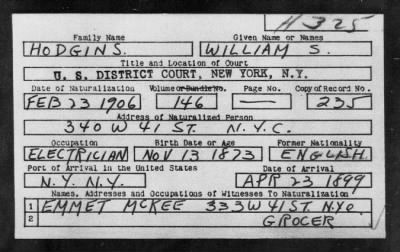 H 325
Family Name Given Name or Names
HODGINS. WILLIAM S.
Title and Location of Court
U. S. DISTRICT COURT, NEW YORK, N.Y.
Date of Naturalization Volume or Bundle No. Page No. Copy of Record No.
FEB 23 1906 146 — 235
Address of Naturalized Person
340 W 41 ST. N.Y.C.
Occupation Birth Date or Age Former Nationality
ELECTRICIAN NOV 13 1873 ENGLISH
Port of Arrival in the United States Date of Arrival
N.Y. N.Y. APR 23 1899
Names, Addresses and Occupations of Witnesses To Naturalization
1 EMMET MCKEE 333 W 41 ST NYC
2 GROCER